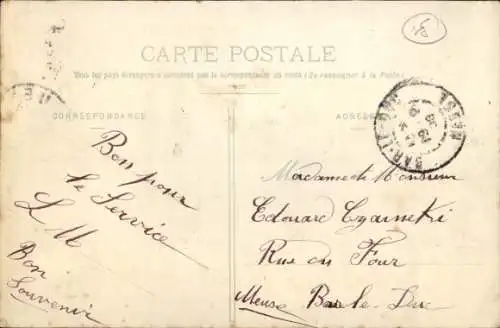 CARTE POSTALE
Tous les pays étrangers n'acceptent pas la correspondance au recto (Se renseigner à la Poste)
CORRESPONDANCE
ADRESSE
BAR-LE-DUC
MEUSE
Bon pour
le Service
L M
Bon
Souvenir
Madame et Monsieur
Edouard Czarnecki
Rue du Four
Meuse Bar le Duc